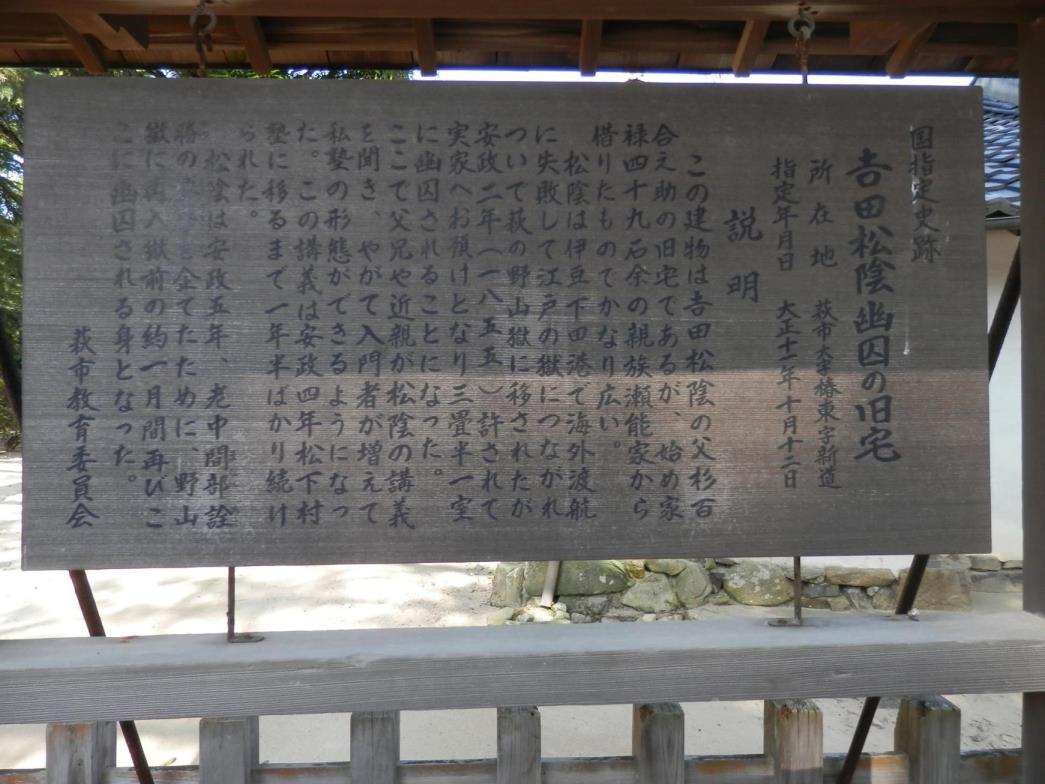 国指定史跡
吉田松陰幽囚の旧宅
所在地 萩市大字椿東字新道
指定年月日 大正十一年十月十二日
説明
この建物は吉田松陰の父杉百
合之助の旧宅であるが、始め家
禄四十九石余の親族瀬能家から
借りたものでかなり広い。
松陰は伊豆下田港で海外渡航
に失敗して江戸の獄につながれ
ついで萩の野山獄に移されたが
安政二年(一八五五)許されて
実家へお預けとなり三畳半一室
に幽囚されることになった。
ここで父兄や近親が松陰の講義
を聞き、やがて入門者が増えて
私塾の形態ができるようになっ
た。この講義は安政四年松下村
塾に移るまで一年半ばかり続け
られた。
松陰は安政五年、老中間部詮
勝の を企てたために、野山
獄に再入獄前の約一月間再びこ
こに幽囚される身となった。
萩市教育委員会